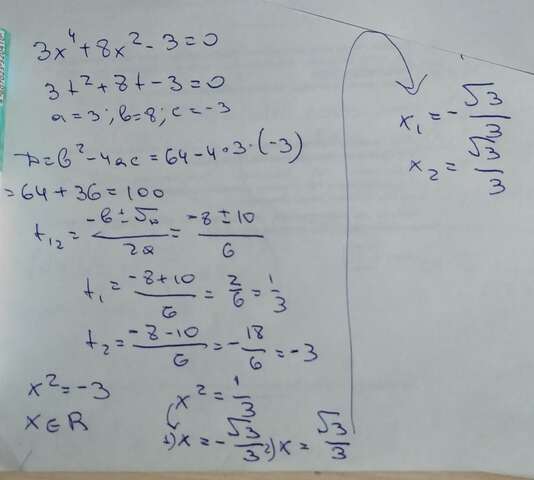 3x⁴+8x²-3=0
3t²+8t-3=0
a=3; b=8; c=-3
D=b²-4ac=64-4·3·(-3)
=64+36=100
t₁₂=(-b±√D)/2a=(-8±10)/6
t₁=(-8+10)/6=2/6=1/3
t₂=(-8-10)/6=-18/6=-3
x²=-3
x∈R
x²=1/3
1)x=-√3/3 2)x=√3/3
x₁=-√3/3
x₂=√3/3